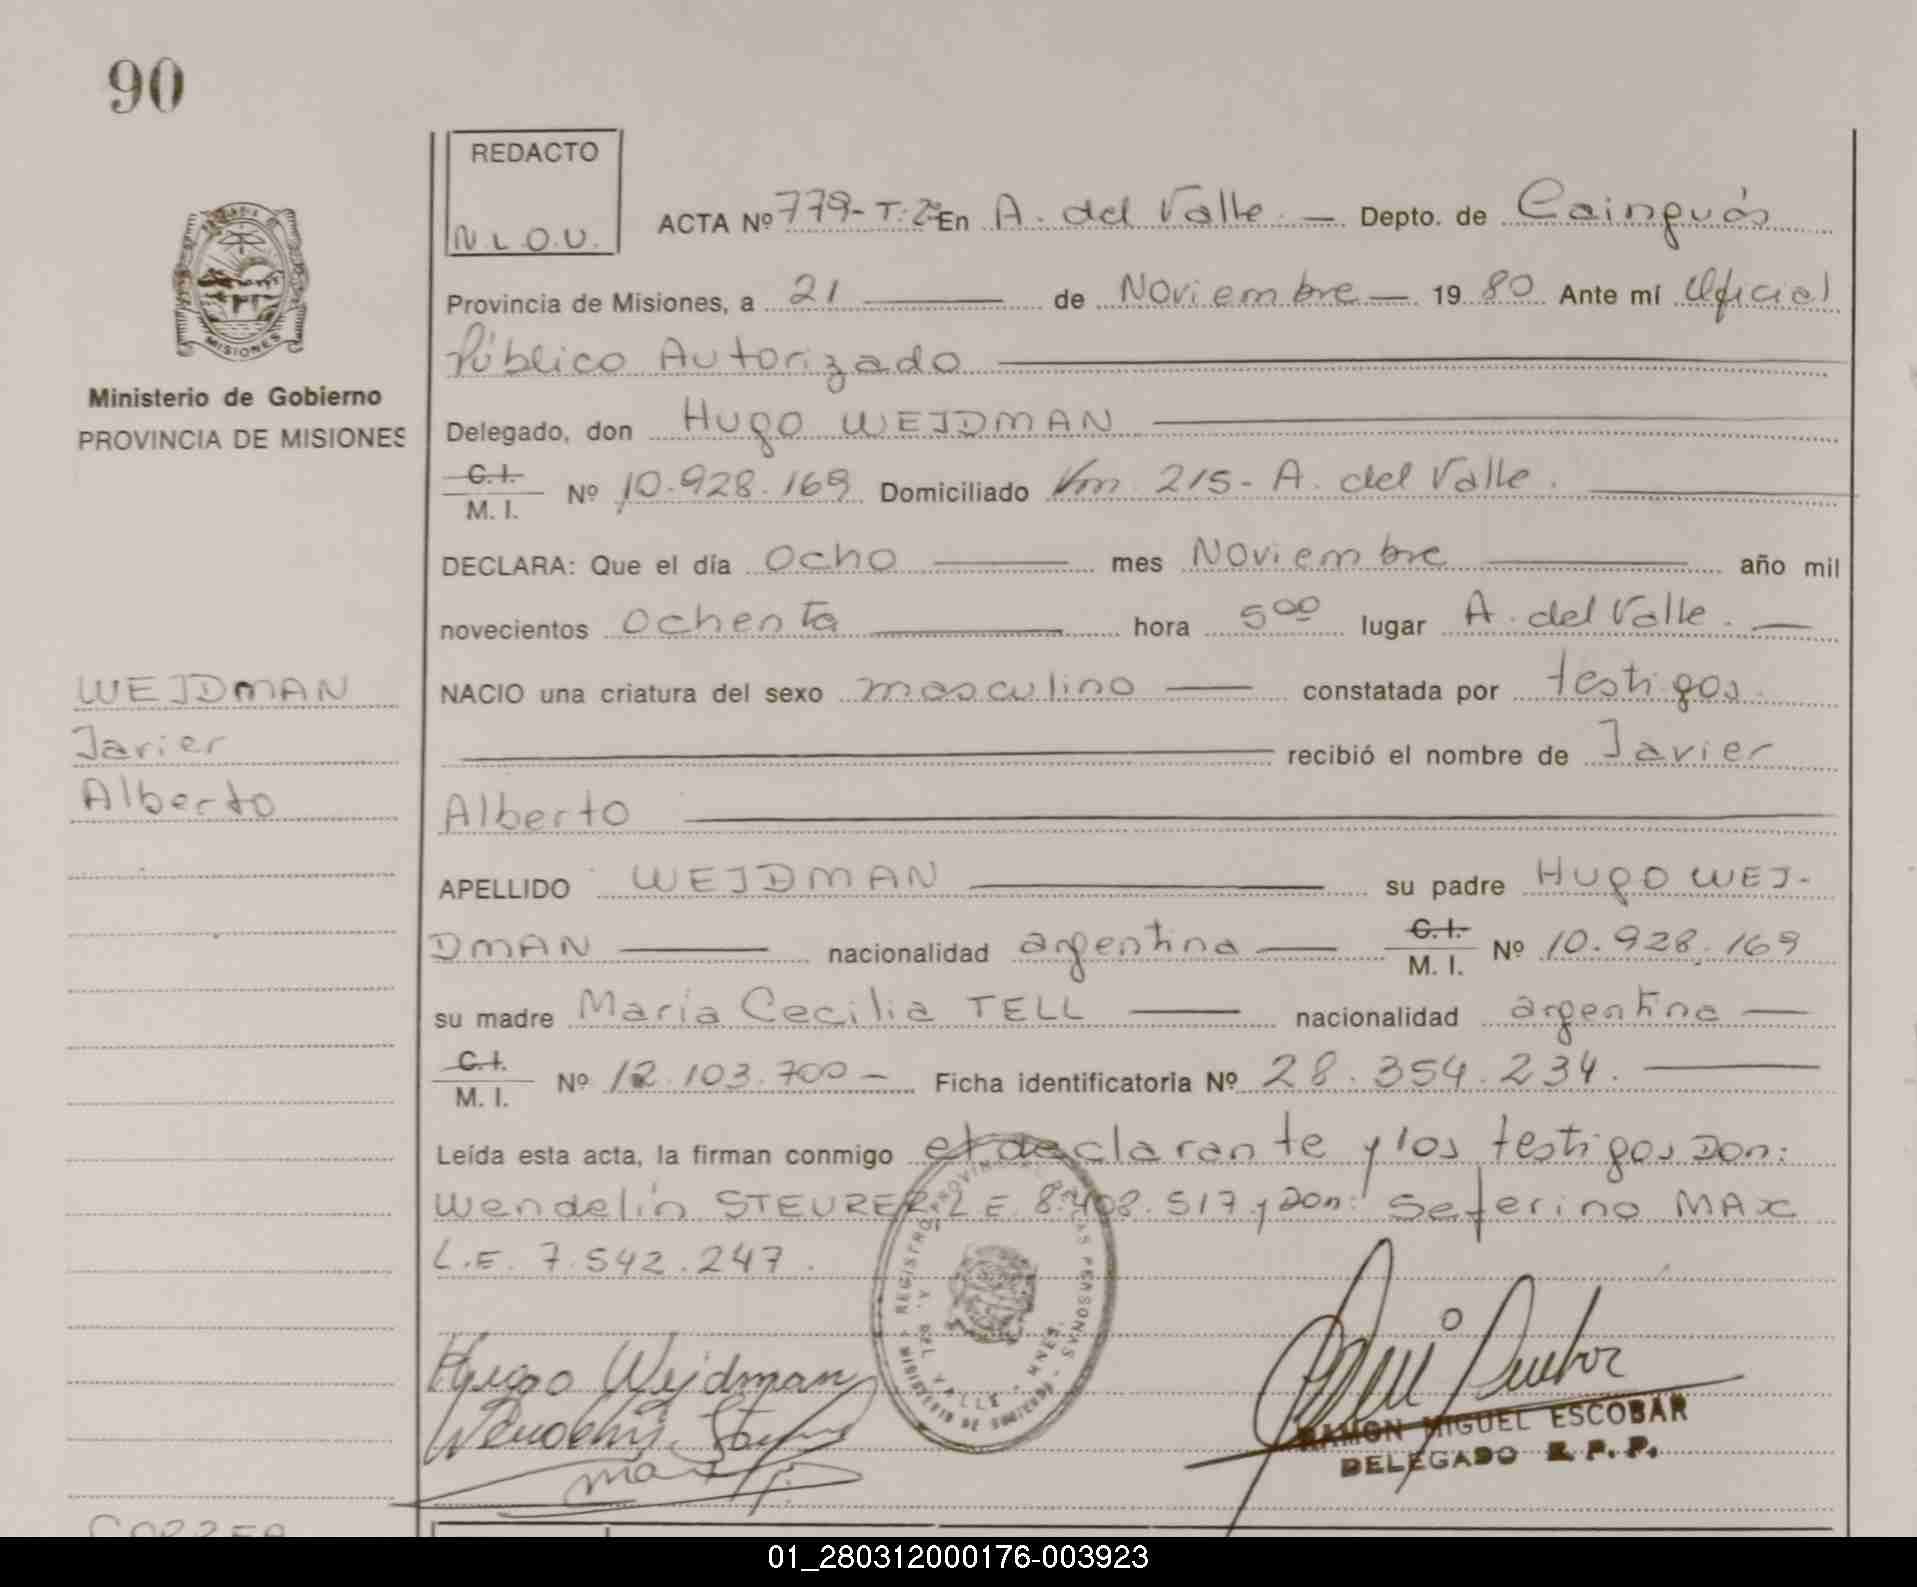 90
REDACTO
N.L.O.U.
ACTA Nº 779-T:2º En A. del Valle. — Depto. de Cainguás
MISIONES
Provincia de Misiones, a 21 — de Noviembre — 19 80 Ante mí Oficial
Público Autorizado
Ministerio de Gobierno
PROVINCIA DE MISIONES
Delegado, don Hugo WEJDMAN
C.I. / M.I. Nº 10.928.169 Domiciliado Km 215 - A. del Valle.
DECLARA: Que el día Ocho — mes Noviembre — año mil
novecientos ochenta — hora 5 00 lugar A. del Valle. —
NACIO una criatura del sexo masculino — constatada por testigos
— recibió el nombre de Javier
Alberto
WEJDMAN
Javier
Alberto
APELLIDO WEJDMAN — su padre Hugo WEJ-
DMAN — nacionalidad argentina — C.I. / M.I. Nº 10.928.169
su madre María Cecilia TELL — nacionalidad argentina —
C.I. / M.I. Nº 12.103.700 — Ficha identificatoria Nº 28.354.234. —
Leída esta acta, la firman conmigo el declarante y los testigos Don:
Wendelín STEURER L.E. 8.408.517 y Don: Seferino MAX
L.E. 7.542.247.
REGISTRO PROVINCIAL DE LAS PERSONAS
MINISTERIO DE GOBIERNO
DEL VALLE - MNES.
Hugo Wejdman
RAMON MIGUEL ESCOBAR
DELEGADO R. P. P.
CORREA
01_280312000176-003923